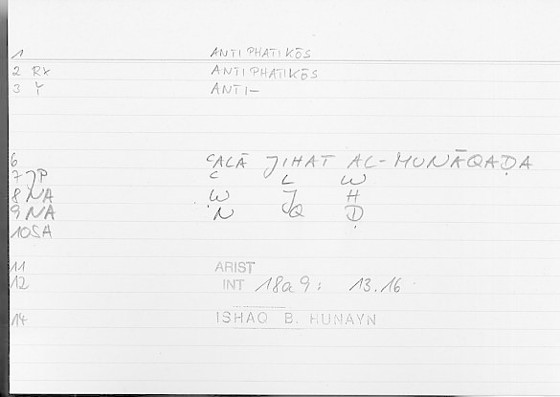 1 ANTIPHATIKŌS
2 RX ANTIPHATIKŌS
3 Y ANTI-
6 ʿALĀ JIHAT AL-MUNĀQAḌA
7 JP ʿ L W
8 NA W J H
9 NA N Q Ḍ
10 SA
11 ARIST
12 INT 18a9: 13.16
14 ISHAQ B. HUNAYN